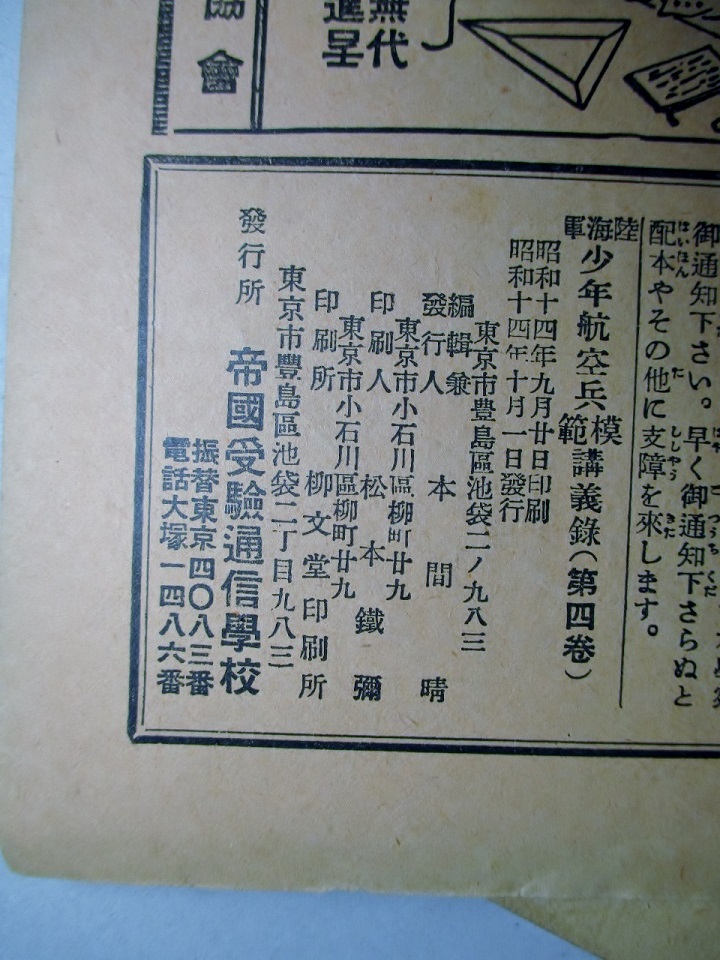 協會
無代
進呈
御通知下さい。早く御通知下さらぬと
配本やその他に支障を來します。
陸海軍少年航空兵模範講義錄（第四卷）
昭和十四年九月廿日印刷
昭和十四年十月一日發行
東京市豐島區池袋二ノ九八三
編輯兼發行人　本間晴
東京市小石川區柳町廿九
印刷人　松本鐵彌
東京市小石川區柳町廿九
印刷所　柳文堂印刷所
東京市豐島區池袋二丁目九八三
發行所　帝國受驗通信學校
振替東京四〇八三番
電話大塚一四八六番